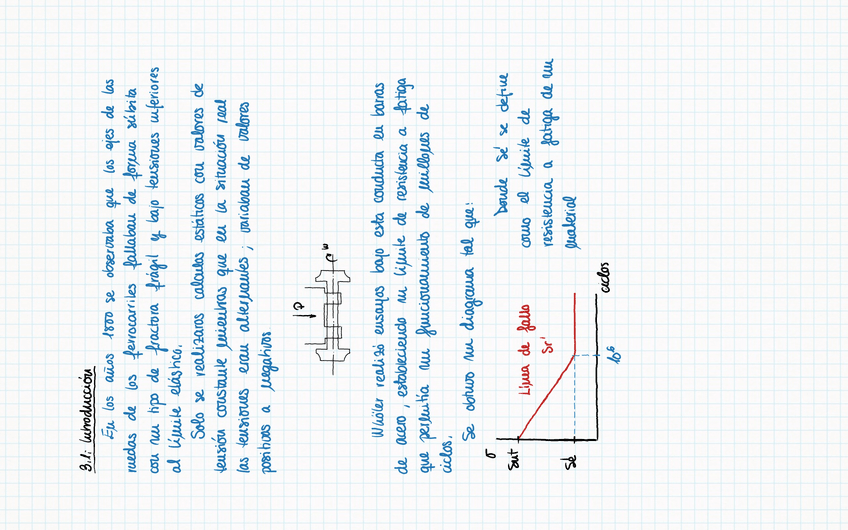 3.1: Introducción
En los años 1800 se observaba que los ejes de las
ruedas de los ferrocarriles fallaban de forma súbita
con un tipo de fractora frágil y bajo tensiones inferiores
al límite elástico.
Solo se realizaros calculos estáticos con valores de
tensión constante mientras que en la situación real
las tensiones eran alternantes; variaban de valores
positivos a negativos
P
w
Whöler realizó ensayos bajo esta conducta en barras
de acero, estableciendo un límite de resistencia a fatiga
que permitía un funcionamiento de millones de
ciclos.
Se obtuvo un diagrama tal que:
σ
Sut
Línea de fallo
Sr'
Sé
10⁶
ciclos
Donde Sé' se define
como el límite de
resistencia a fatiga de un
material